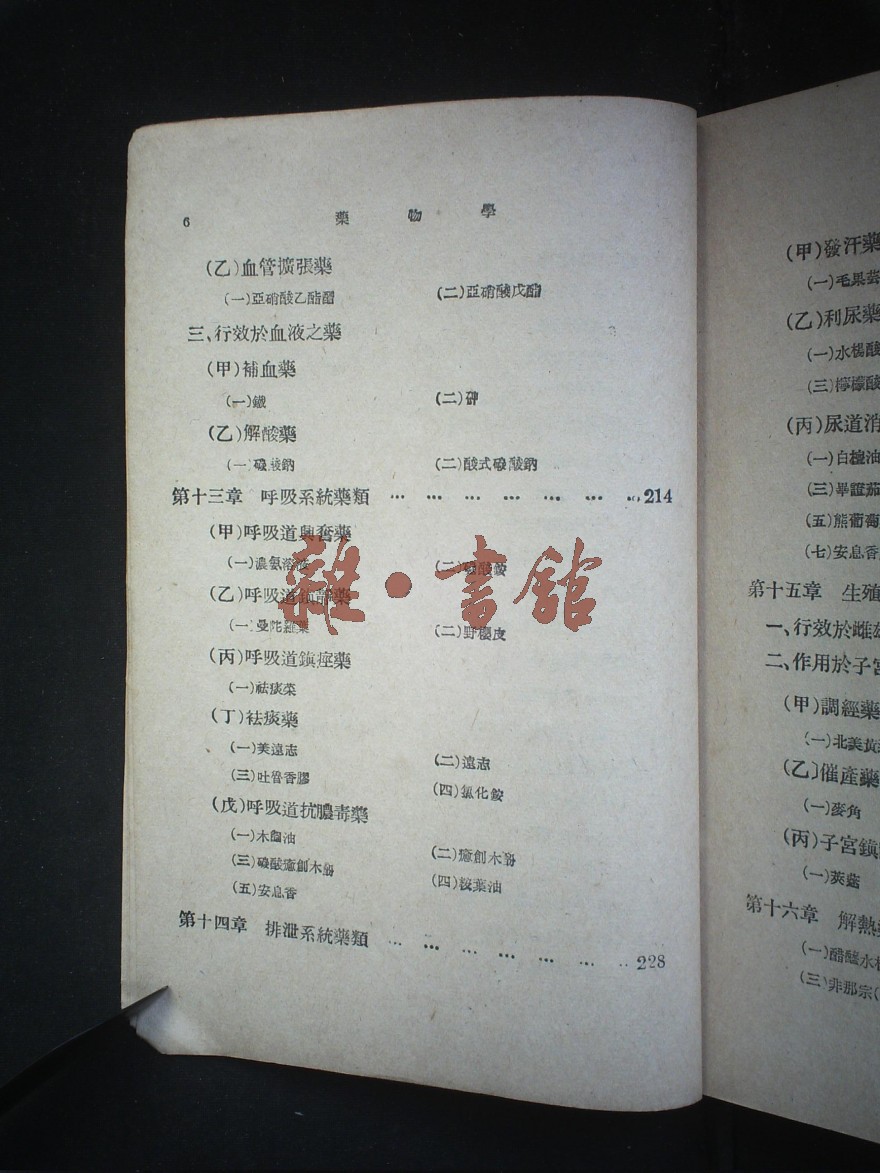 6 藥物學
(乙)血管擴張藥
(一)亞硝酸乙酯醑 (二)亞硝酸戊酯
三、行效於血液之藥
(甲)補血藥
(一)鐵 (二)砷
(乙)解酸藥
(一)碳酸鈉 (二)酸式碳酸鈉
第十三章 呼吸系統藥類 … … … … … … …214
(甲)呼吸道興奮藥
(一)濃氨溶液 (二)碳酸銨
(乙)呼吸道鎮靜藥
(一)曼陀羅葉 (二)野櫻皮
(丙)呼吸道鎮痙藥
(一)祛痰菜
(丁)祛痰藥
(一)美遠志 (二)遠志
(三)吐魯香膠 (四)氯化銨
(戊)呼吸道抗膿毒藥
(一)木餾油 (二)癒創木酚
(三)碳酸癒創木酚 (四)桉葉油
(五)安息香
第十四章 排泄系統藥類 … … … … … … …228
雜·書館
(甲)發汗藥
(一)毛果芸
(乙)利尿藥
(一)水楊酸
(三)檸檬酸
(丙)尿道消
(一)白檀油
(三)蓽澄茄
(五)熊葡萄
(七)安息香
第十五章 生殖
一、行效於雌雄
二、作用於子宮
(甲)調經藥
(一)北美黃
(乙)催產藥
(一)麥角
(丙)子宮鎮
(一)莢蒾
第十六章 解熱
(一)醋醯水楊
(三)非那宗(